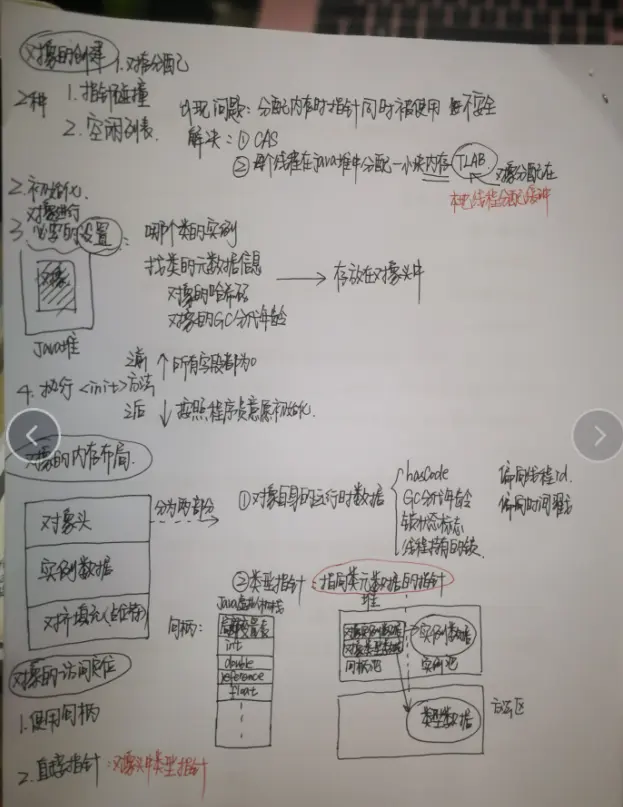 对象的创建 1. 对象分配
2种 1. 指针碰撞
2. 空闲列表.
出现问题：分配内存时指针同时被使用 不安全
解决：① CAS
② 每个线程在java堆中分配一小块内存 TLAB
对象分配在
本地线程分配缓冲
2. 初始化
对象进行
3. 必要的设置：
哪个类的实例
找类的元数据信息
对象的哈希码
对象的GC分代年龄
存放在对象头中
对象
Java堆
之前 ↑ 所有字段都为0
4. 执行 <init>方法
之后 ↓ 按照程序员意愿初始化.
对象的内存布局.
对象头
实例数据
对齐填充(占位符)
分为两部分
① 对象自身的运行时数据
hasCode
GC分代年龄
锁状态标志
线程持有的锁.
偏向线程id.
偏向时间戳
② 类型指针：指向类元数据的指针
对象的访问定位
句柄：
Java虚拟机栈
局部变量表
int
double
reference
float
堆
对象实例数据
对象类型数据
句柄池
实例数据
实例池
类型数据
方法区
1. 使用句柄
2. 直接指针：对象头中类型指针